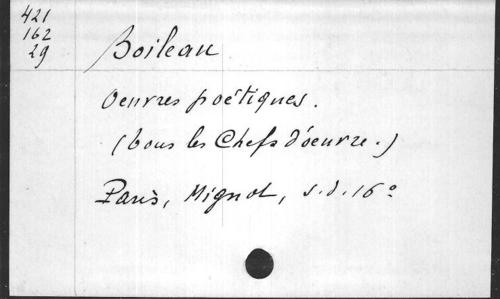 421
162
29
Boileau
Oeuvres poétiques.
(tous les Chefs d'oeuvre.)
Paris, Mignot, s.d. 16°